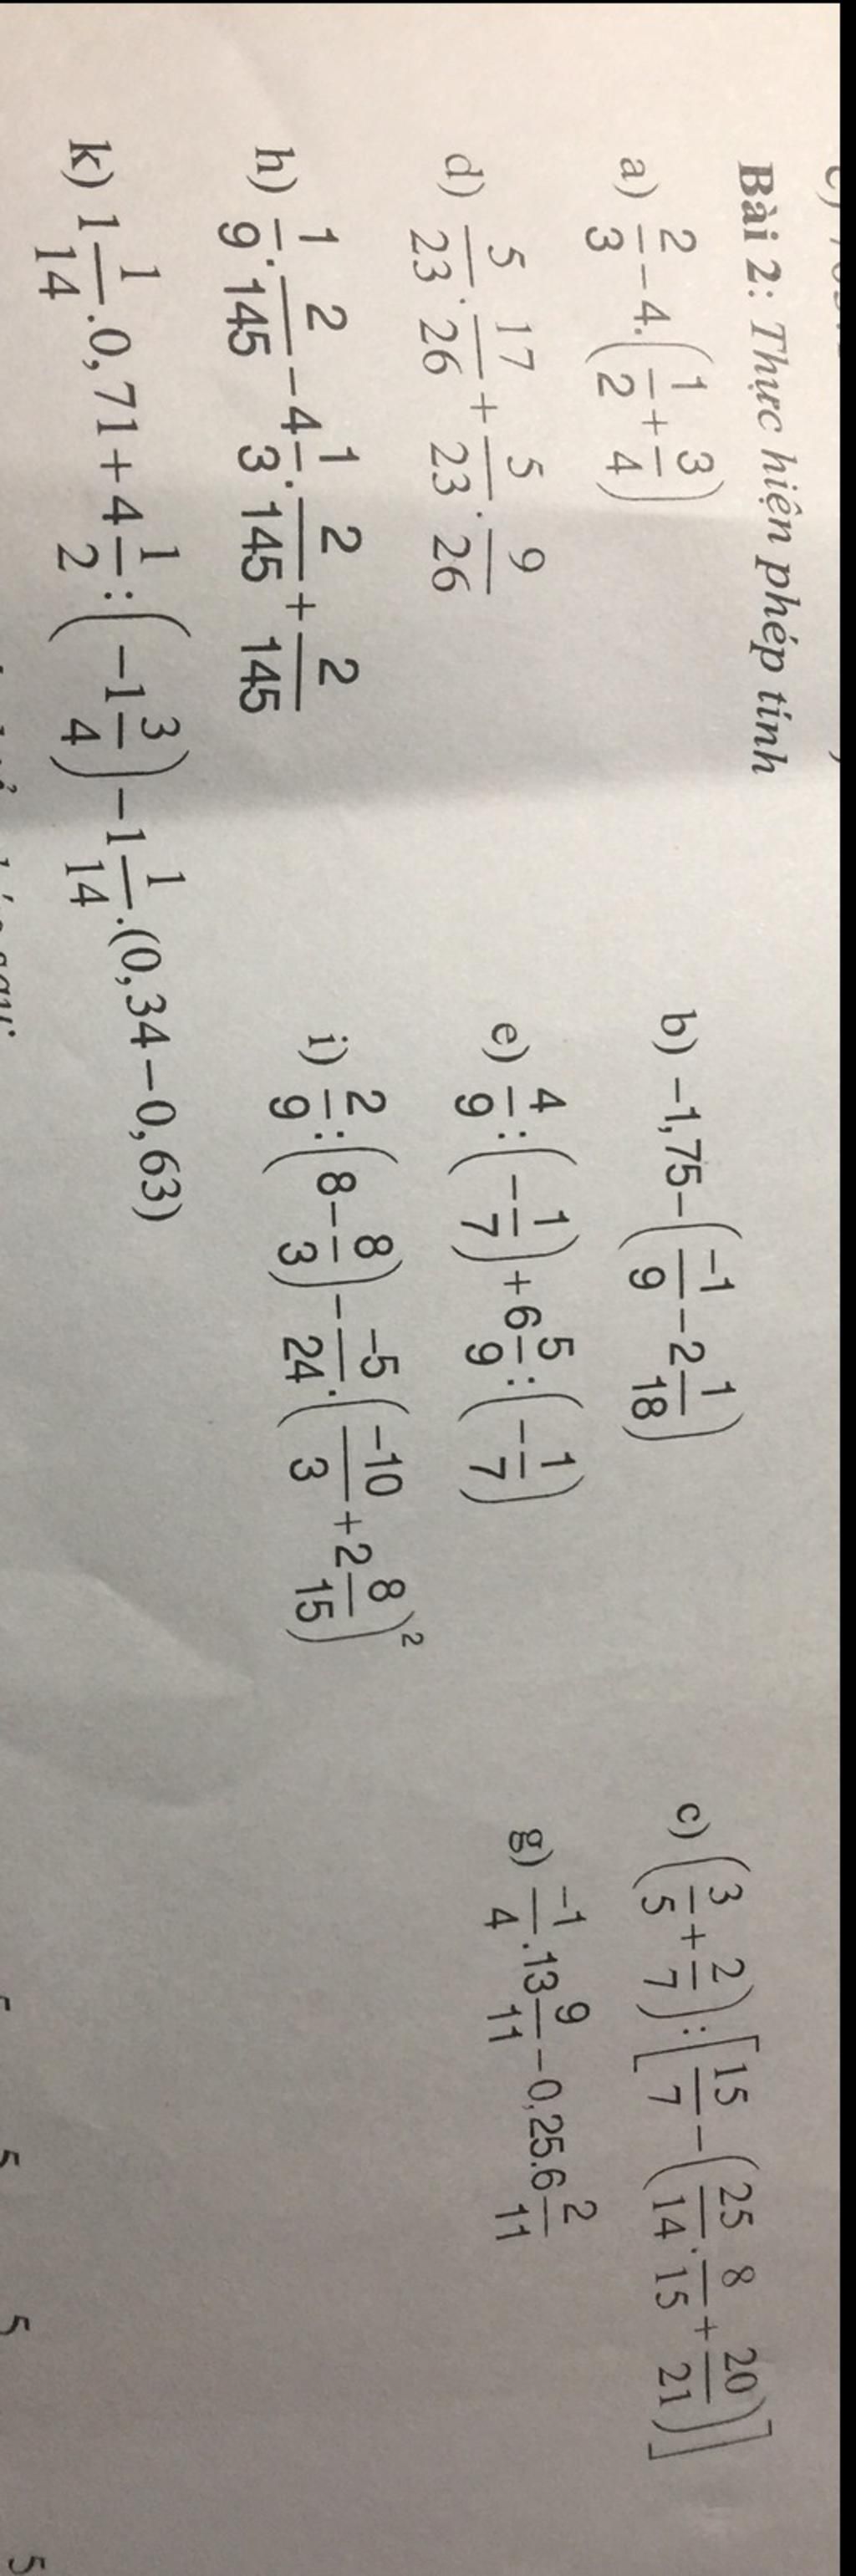 Bài 2: Thực hiện phép tính
a) 2/3 − 4.(1/2 + 3/4) b) −1,75 − (−1/9 − 2 1/18) c) (3/5 + 2/7) : [15/7 − (25/14 . 8/15 + 20/21)]
d) 5/23 . 17/26 + 5/23 . 9/26 e) 4/9 : (−1/7) + 6 5/9 : (−1/7) g) −1/4 . 13 9/11 − 0,25.6 2/11
h) 1/9 . 2/145 − 4 1/3 . 2/145 + 2/145 i) 2/9 : (8 − 8/3) − −5/24 . (−10/3 + 2 8/15)²
k) 1 1/14 . 0,71 + 4 1/2 : (−1 3/4) − 1 1/14 . (0,34 − 0,63)